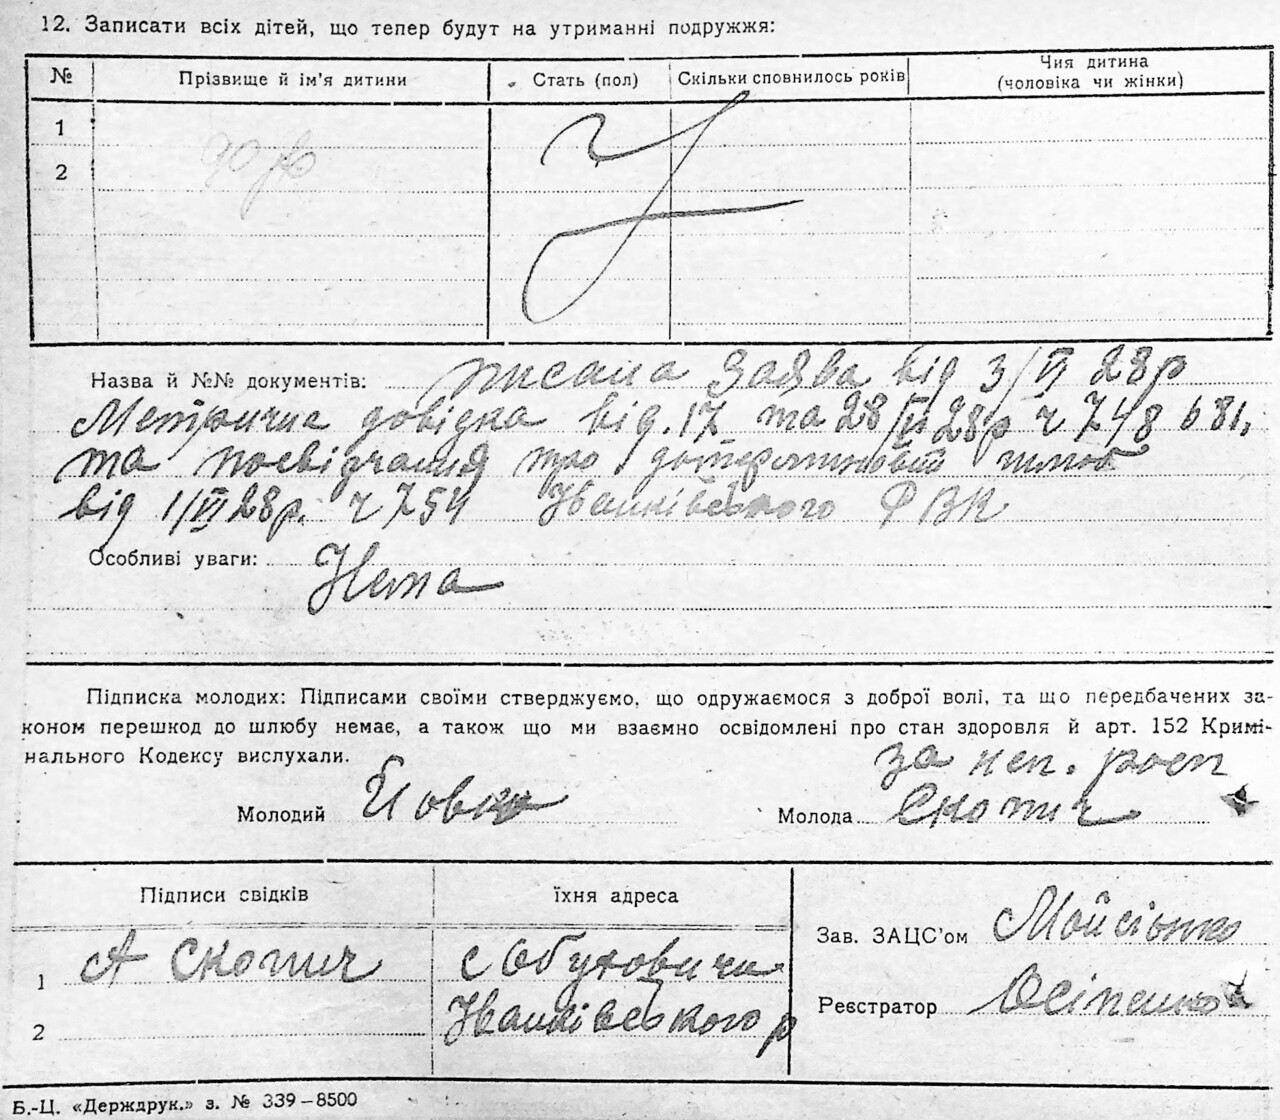 12. Записати всіх дітей, що тепер будут на утриманні подружжя:
№ Прізвище й ім'я дитини Стать (пол) Скільки сповнилось років Чия дитина
(чоловіка чи жінки)
1
2
Назва й №№ документів: писана заява від 3/VI 28р
Метрична довідка від. 17 та 28/VI 28р ч 748 681,
та посвідчання про шлюб
від 1/VI 28р. ч 754 Іванківського РВК
Особливі уваги: Нема
Підписка молодих: Підписами своїми стверджуємо, що одружаємося з доброї волі, та що передбачених за-
коном перешкод до шлюбу немає, а також що ми взаємно освідомлені про стан здоровля й арт. 152 Кримі-
нального Кодексу вислухали.
за неп. росп
Молодий Йовко Молода Скопич
Підписи свідків їхня адреса
1 А Скопич с Обуховичи
2 Іванківського р
Зав. ЗАЦС'ом Мойсієнко
Реєстратор Осіпенко
Б.-Ц. «Держдрук.» з. № 339–8500